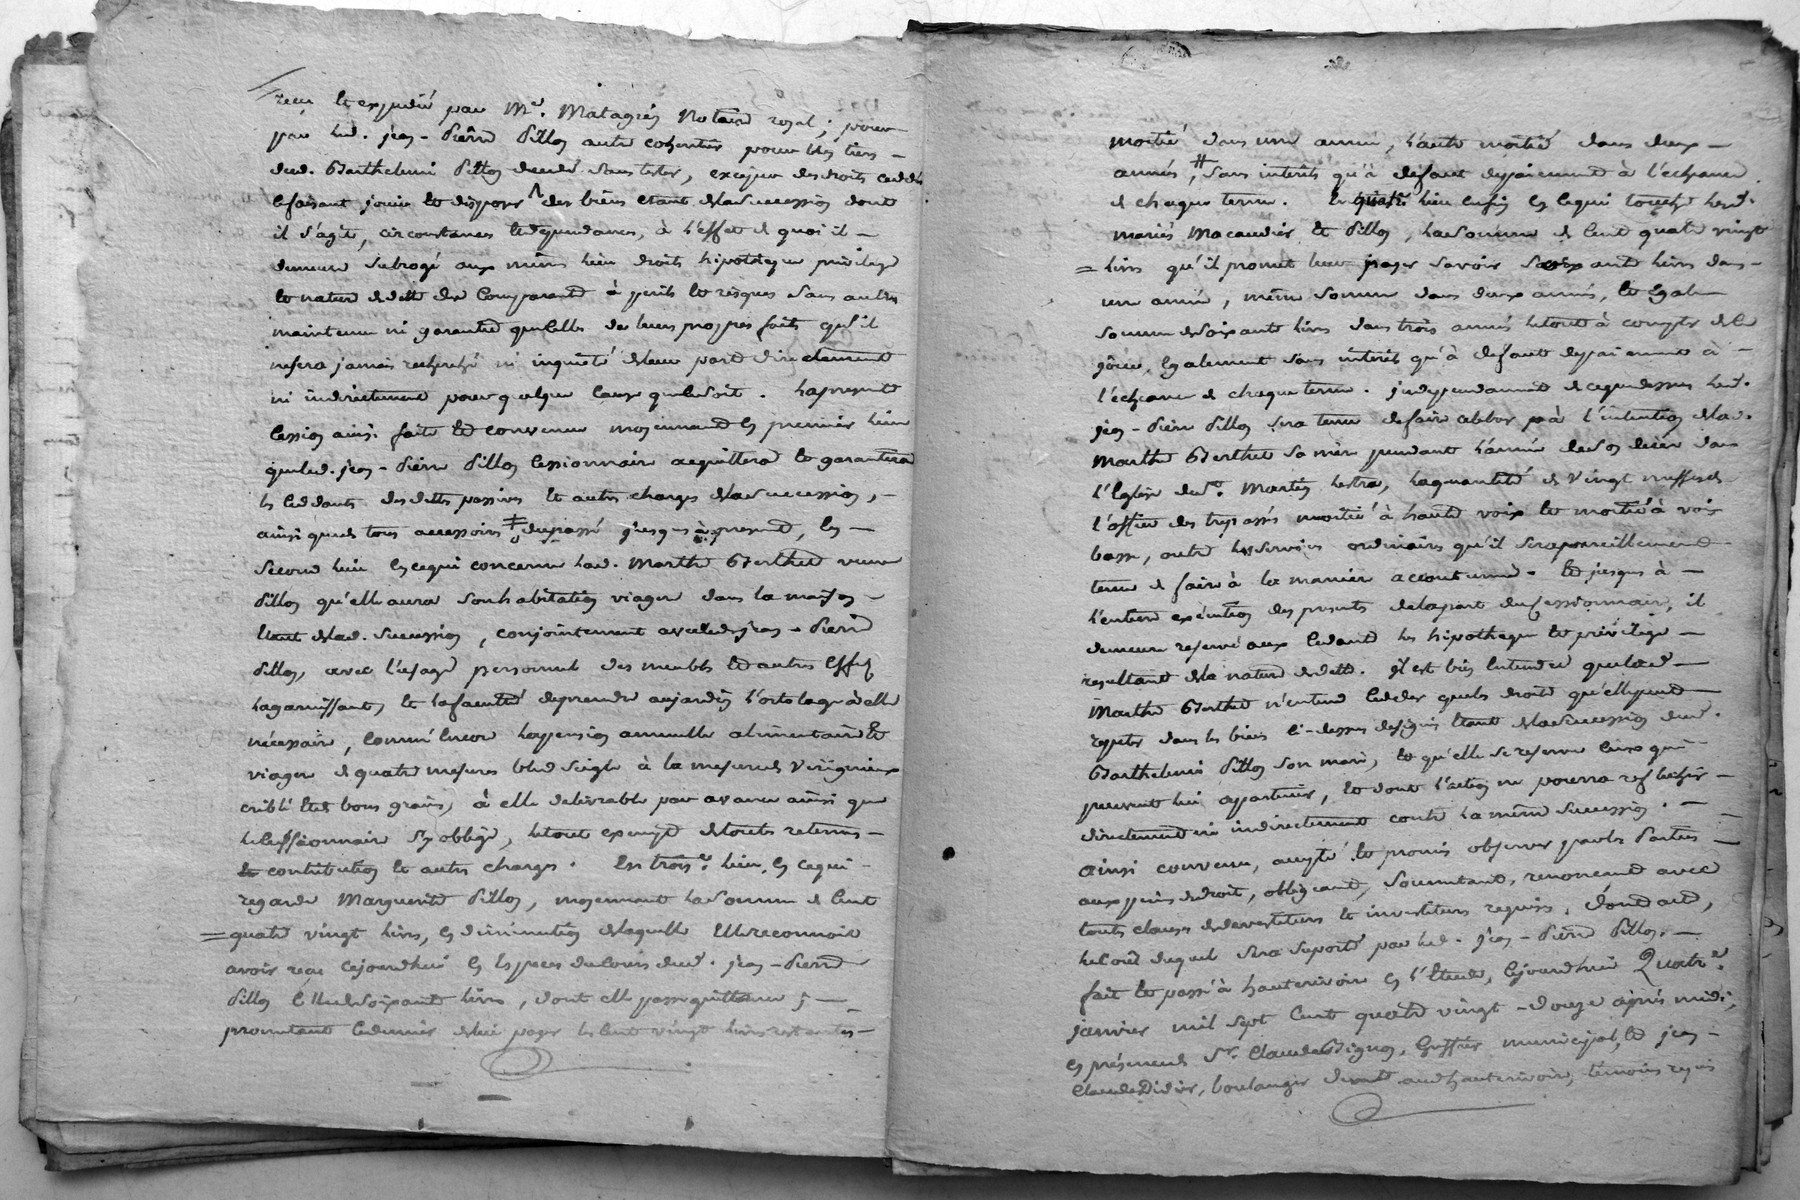 reçu et expédié par Me. Matagrin Notaire royal; pour
par led. jean-Pierre Pillon autre cohéritier pour les tiers -
dud. Barthelemi Pillon décédé sans tester, exerçer des droits cedés
le faisant jouir et disposer des biens étant de la Succession dont
il s'agit, circonstances et dépendances, à l'effet de quoi il -
demeure subrogé aux mêmes lieu droits hipotèque privilege
et nature de dette des Comparants à perils et risques sans autre
maintenue ni garantie que celle de leurs propres faits qu'il
ne sera jamais recherché ni inquiété de leur part directement
ni indirectement pour quelque cause que ce soit. la presente
cession ainsi faite et convenue moyennant en premier lieu
que led. jean-Pierre Pillon cessionnaire acquittera et garantira
les cedants des dettes passives et autres charges de la succession, -
ainsi que de tous accessoires du passé jusques à present, en -
second lieu en ce qui concerne lad. Marthe Berthet veuve
Pillon qu'elle aura son habitation viagere dans la maison -
étant de lad. succession, conjointement avec led. jean-Pierre
Pillon, avec l'usage personnel des meubles et autres effets
la garnissants, et la faculté de prendre au jardin l'ortolage à elle
nécessaire, comm'encor la pension annuelle alimentaire et
viagere de quatre mesures bled seigle à la mesure de Virigneux
criblé et de bons grains, à elle delivrable par avance ainsi que
le cessionnaire s'y oblige, le tout exempt de toutes retenues -
et contribution et autres charges. En trois.e lieu, en ce qui -
regarde Marguerite Pillon, moyennant la somme de cent
= quatre vingt livres, en diminution de laquelle elle reconnoit
avoir reçu cejourdhui en espèces du cours dud. jean-Pierre
Pillon celle de soixante livres, dont elle passe quittance; -
promettant ce dernier de lui payer les cent vingt livres restantes -
moitié dans une année, l'autre moitié dans deux -
années, # sans interêts qu'à défaut de paiement à l'échéance
de chaque terme. En lieu enfin en ce qui touche lesd.
mariés Macaudier et Pillon, la somme de cent quatre vingt
= livres qu'il promet leur payer savoir soixante livres dans -
une année, même somme dans deux années, et égale
somme de soixante livres dans trois années le tout à compter de ce
jour, également sans interêt qu'à défaut de paiement à -
l'échéance de chaque terme. jndependamment de ce que dessus led.
jean-Pierre Pillon sera tenu de faire celebrer à l'intention de lad.
Marthe Berthet sa mère pendant l'année de son décès dans
l'Eglise de St. Martin lestra, la quantité de vingt messes de
l'office des trepassés moitié à haute voix et moitié à voix
basse, outre les services ordinaires qu'il sera pareillement
tenu de faire à la maniere accoutumée. et jusques à -
l'entiere exécution des presentes de la part du cessionnaire, il
demeure reservé aux cedants les hipotheque et privilege -
resultants de la nature de dette. il est bien entendu que lad. -
Marthe Berthet n'entend ceder que les droits qu'elle peut
repeter dans les biens ci-dessus designés étant de la succession dud.
Barthelemi Pillon son mari, et qu'elle se reserve ceux qui
peuvent lui appartenir, et dont l'action ne pourra reflechir -
directement ni indirectement contre la même succession. -
ainsi convenu, accepté et promis observer par les Parties -
aux peines de droit, obligeant, soumettant, renonçant avec
toutes clauses de devestitures et investitures requises. dont acte,
le coût duquel sera suporté par led. jean-Pierre Pillon. -
fait et passé à hauterivoire en l'étude, cejourdhui Quatre
janvier mil sept cent quatre vingt-douze après midi,
en présence de Sr. Claude Bignon, Greffier municipal, et jean -
Claude Didier, boulanger demt. aud hauterivoire, témoins requis